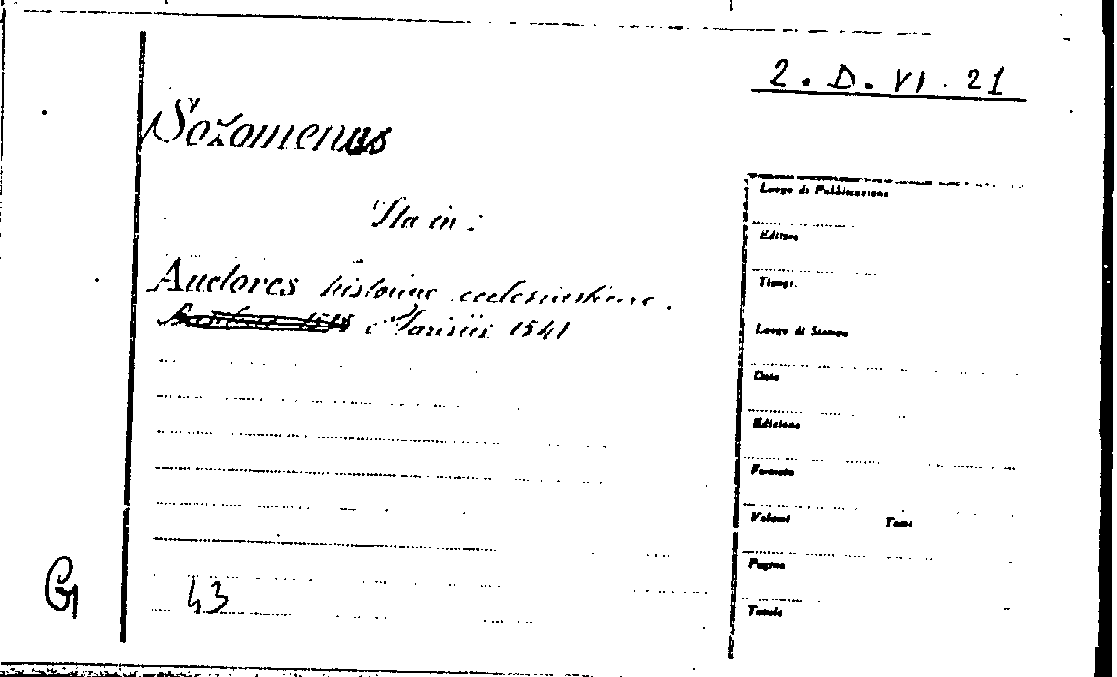 2. D. VI. 21
Sozomenus
Sta in:
Auctores historiae ecclesiasticae.
Parisiis 1541
43
G
Luogo di Pubblicazione
Editore
Tipogr.
Luogo di Stampa
Data
Edizione
Formato
Volumi Tomi
Pagine
Tavole